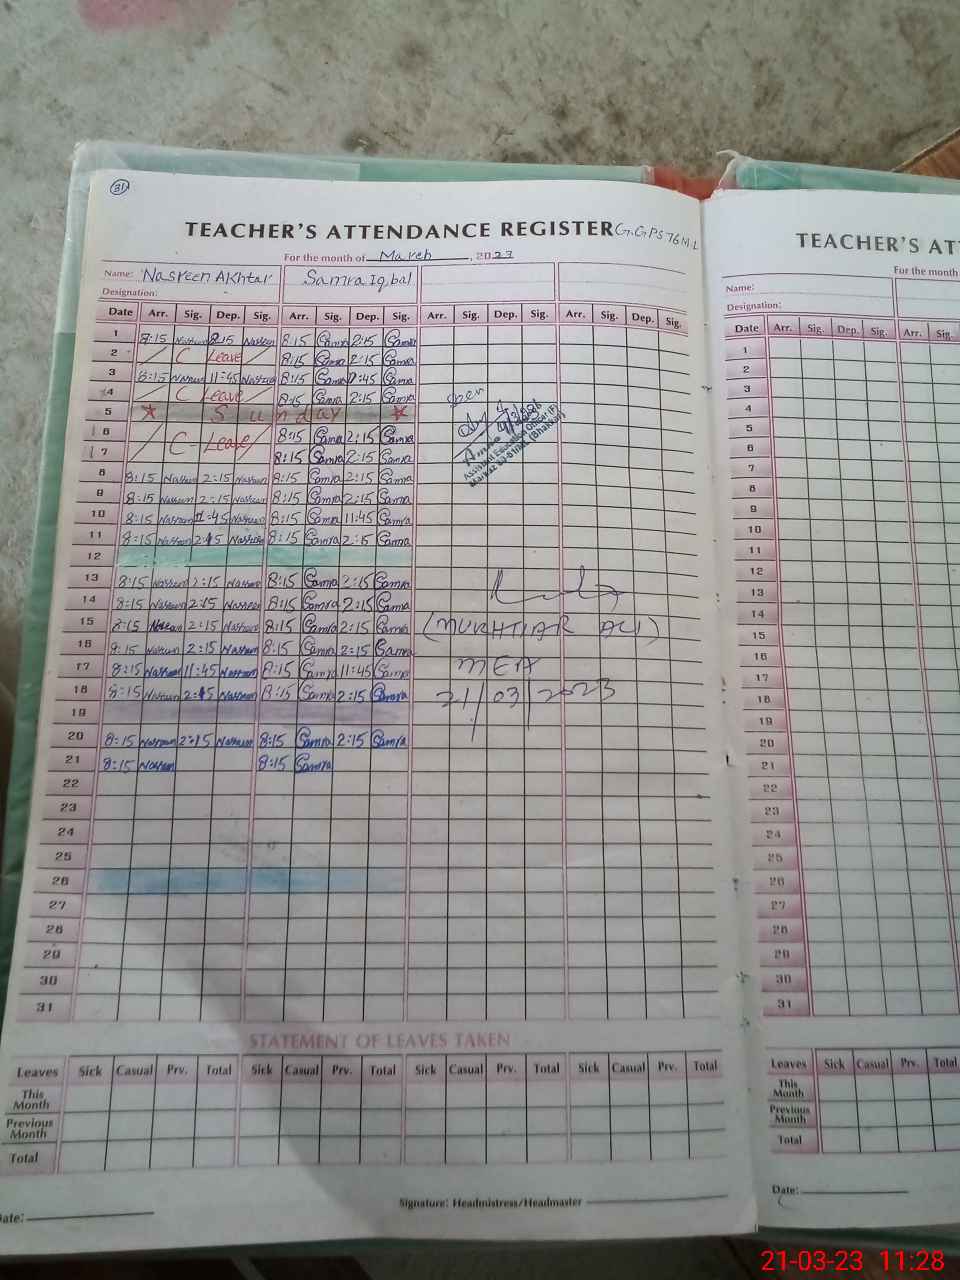 31
TEACHER'S ATTENDANCE REGISTER G.GPS 76 ML
For the month of March, 2023
Name: Nasreen Akhtar Samra Iqbal
Designation:
Date Arr. Sig. Dep. Sig. Arr. Sig. Dep. Sig. Arr. Sig. Dep. Sig. Arr. Sig. Dep. Sig.
1 8:15 Nasreen 2:15 Nasreen 8:15 Samra 2:15 Samra
2 C Leave 8:15 Samra 2:15 Samra
3 8:15 Nasreen 11:45 Nasreen 8:15 Samra 11:45 Samra
4 C Leave 8:15 Samra 2:15 Samra
5 Sunday
6 C-Leave 8:15 Samra 2:15 Samra
7 8:15 Samra 2:15 Samra
8 8:15 Nasreen 2:15 Nasreen 8:15 Samra 2:15 Samra
9 8:15 Nasreen 2:15 Nasreen 8:15 Samra 2:15 Samra
10 8:15 Nasreen 11:45 Nasreen 8:15 Samra 11:45 Samra
11 8:15 Nasreen 2:15 Nasreen 8:15 Samra 2:15 Samra
12
13 8:15 Nasreen 2:15 Nasreen 8:15 Samra 2:15 Samra
14 8:15 Nasreen 2:15 Nasreen 8:15 Samra 2:15 Samra
15 8:15 Nasreen 2:15 Nasreen 8:15 Samra 2:15 Samra
16 8:15 Nasreen 2:15 Nasreen 8:15 Samra 2:15 Samra
17 8:15 Nasreen 11:45 Nasreen 8:15 Samra 11:45 Samra
18 8:15 Nasreen 2:15 Nasreen 8:15 Samra 2:15 Samra
19
20 8:15 Nasreen 2:15 Nasreen 8:15 Samra 2:15 Samra
21 8:15 Nasreen 8:15 Samra
22
23
24
25
26
27
28
29
30
31
Seen
Assistant Education Officer (F)
(MUKHTIAR ALI)
MEA
21/03/2023
STATEMENT OF LEAVES TAKEN
Leaves Sick Casual Prv. Total Sick Casual Prv. Total Sick Casual Prv. Total Sick Casual Prv. Total
This
Month
Previous
Month
Total
Signature: Headmistress/Headmaster
Date:
TEACHER'S AT
For the month
Name:
Designation:
Date Arr. Sig. Dep. Sig. Arr. Sig.
1
2
3
4
5
6
7
8
9
10
11
12
13
14
15
16
17
18
19
20
21
22
23
24
25
26
27
28
29
30
31
Leaves Sick Casual Prv. Total
This
Month
Previous
Month
Total
Date:
21-03-23 11:28